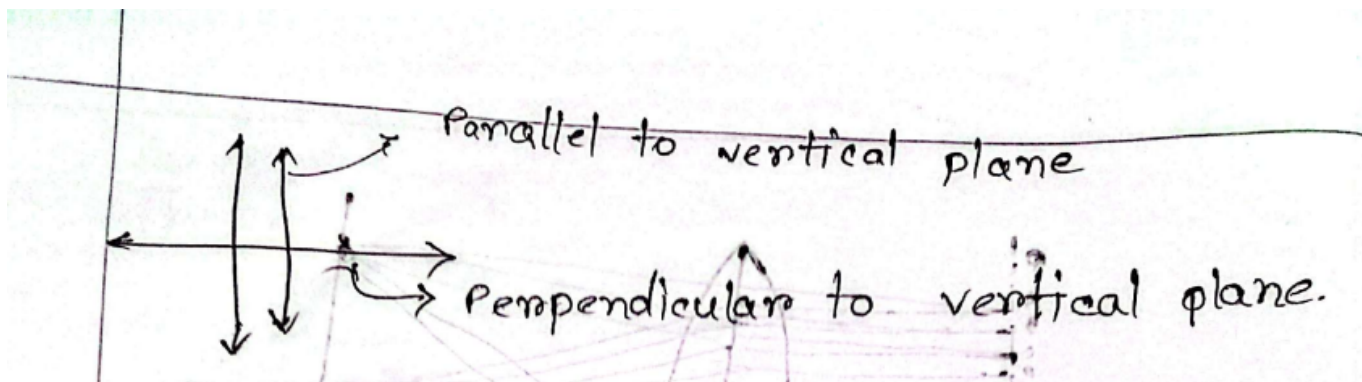 Parallel to vertical plane
Perpendicular to vertical plane.